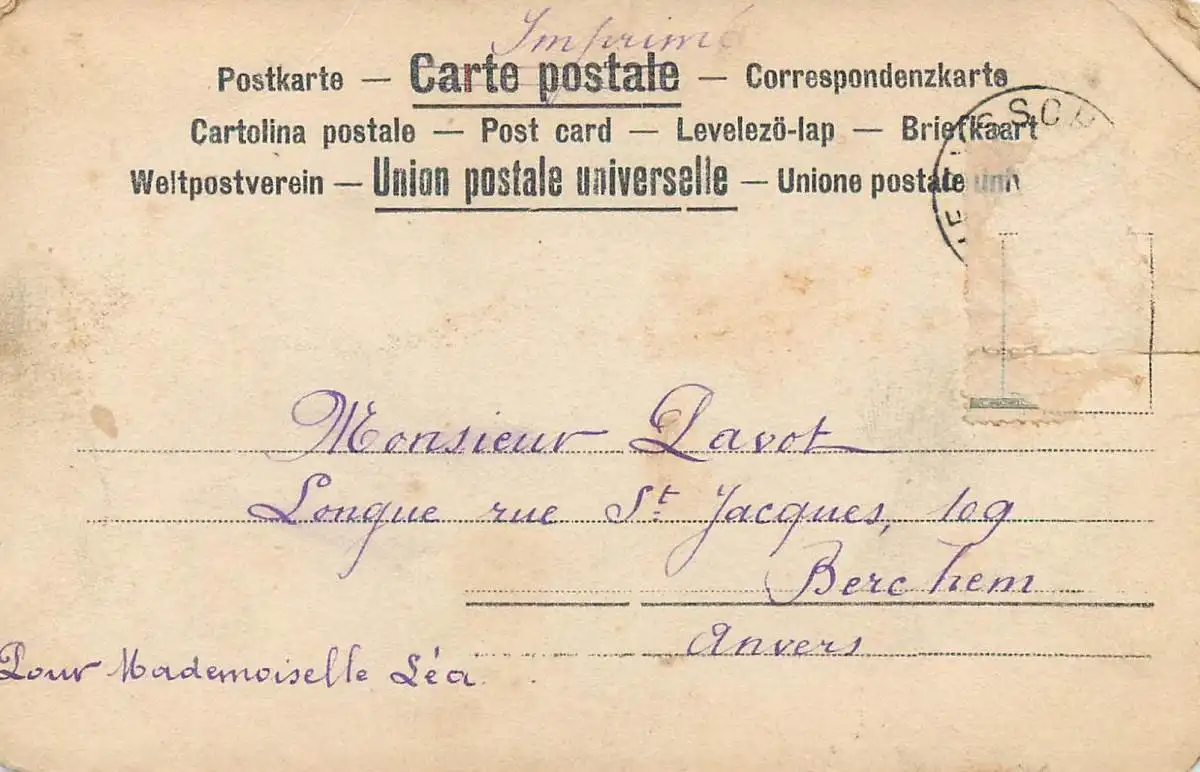 Imprimé
Postkarte — Carte postale — Correspondenzkarte
Cartolina postale — Post card — Levelezö-lap — Briefkaart
Weltpostverein — Union postale universelle — Unione postale
Monsieur Pavot
Longue rue St Jacques, 109
Berchem
Anvers
Pour Mademoiselle Léa